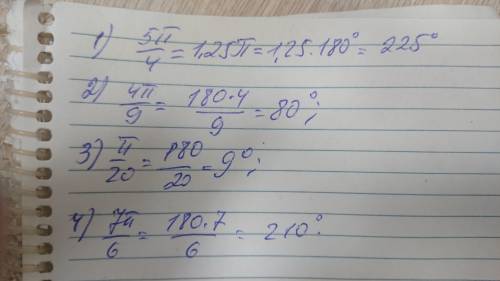 1) 5π/4 = 1,25π = 1,25·180° = 225°
2) 4π/9 = 180·4/9 = 80°;
3) π/20 = 180/20 = 9°;
4) 7π/6 = 180·7/6 = 210°.